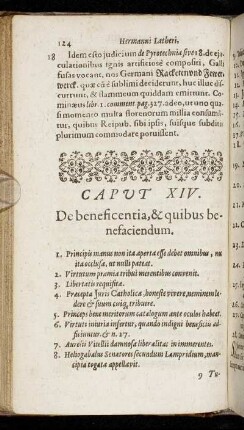 124 Hermanni Latheri.
18 Idem esto judicium de Pyrotechnia sive 18. de eja-
culationibus ignis artificiosè compositi, Galli
fusas vocant, nos Germani Racketen und Fewer-
werck. quæ cũ è sublimi deciderunt, huc illuc dis-
currunt, & flammeum quiddam emittunt. Co-
minæus lib. 1. comment. pag. 327. adeo, ut uno qua-
si momento multa florenorum millia consumã-
tur, quibus Reipub. sibi ipsis, suisque subditis
plurimum commodare potuissent.
CAPUT XIV.
De beneficentia, & quibus be-
nefaciendum.
1. Principis manus non ita aperta esse debet omnibus, nec
ita occlusa, ut nulli pateat.
2. Virtutum præmia tribui merentibus convenit.
3. Libertatis requisita.
4. Præcepta Juris Catholica, honeste vivere, neminem læ-
dere & suum cuiq; tribuere.
5. Princeps bene meritorum catalogum ante oculos habeat.
6. Virtuti injuria infertur, quando indigni beneficiis ad-
ficiuntur. & n. 27.
7. Aurelii Vitellii damnosa liberalitas in immerentes.
8. Heliogabalus Senatores secundum Lampridium, man-
cipia togata appellavit.
9 Tu-